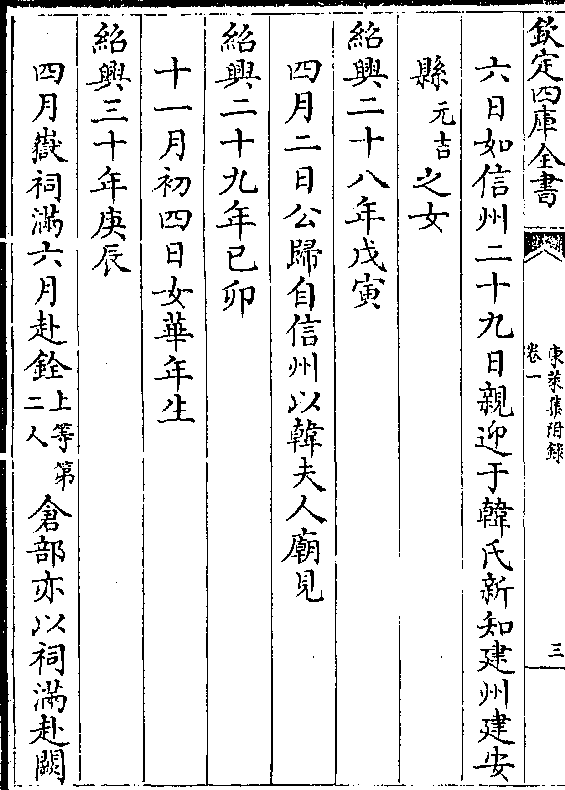 欽定四庫全書
東萊集附錄
卷一
三
六日如信州二十九日親迎于韓氏新知建州建安
縣元吉之女
紹興二十八年戊寅
四月二日公歸自信州以韓夫人廟見
紹興二十九年已卯
十一月初四日女華年生
紹興三十年庚辰
四月嶽祠滿六月赴銓上等第二人倉部亦以祠滿赴闕